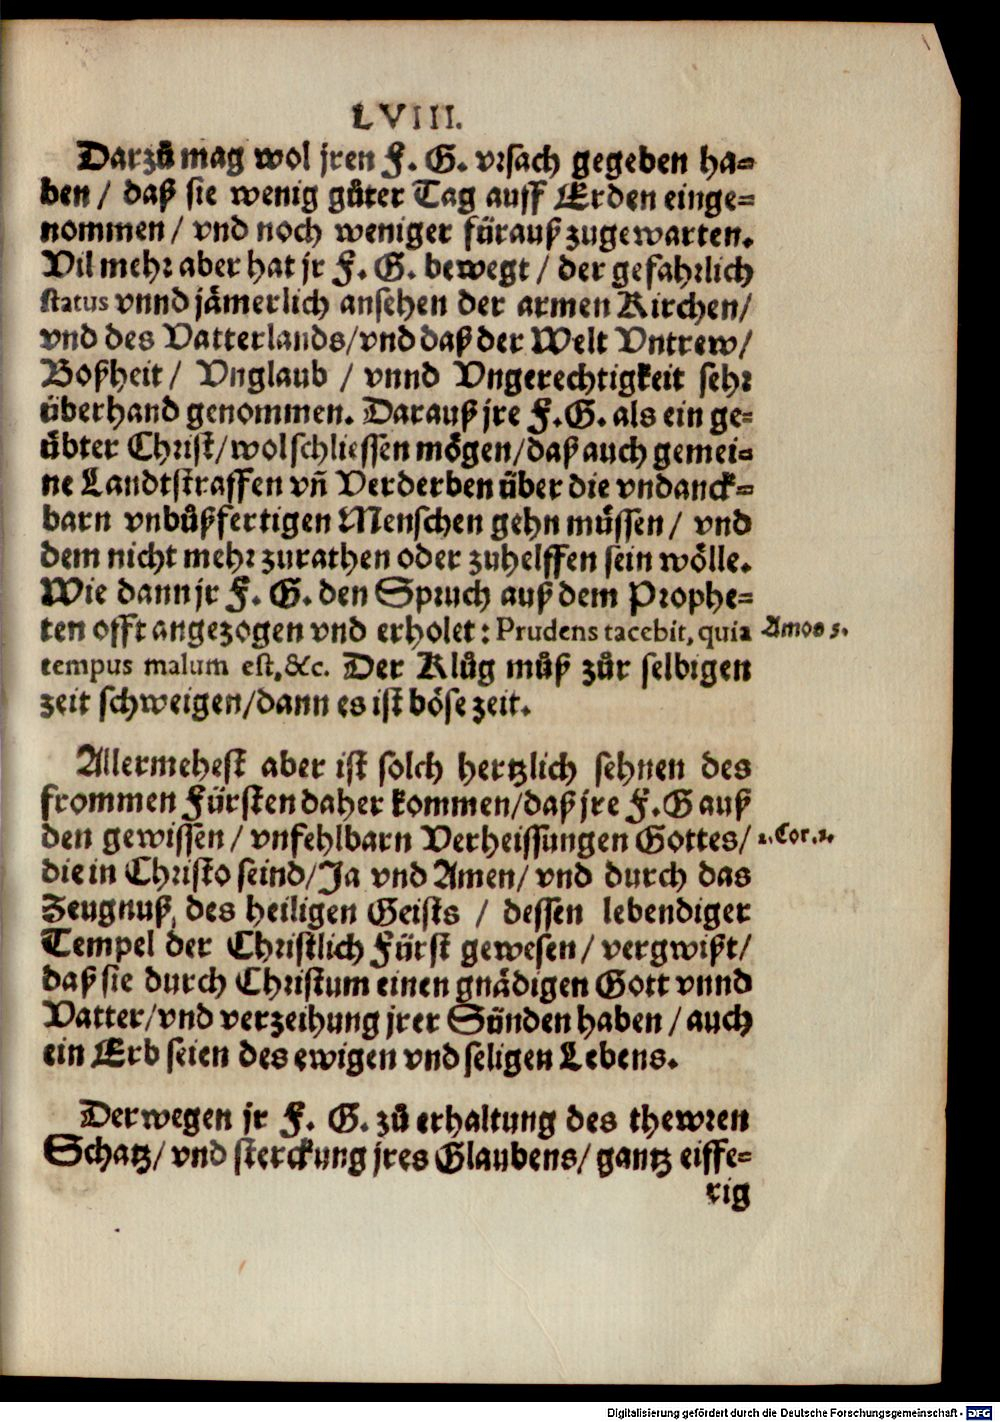 LVIII.
Darzů mag wol jren F. G. vrsach gegeben ha-
ben / daß sie wenig gůter Tag auff Erden einge-
nommen / vnd noch weniger fürauß zugewarten.
Vil mehr aber hat jr F. G. bewegt / der gefahrlich
status vnnd jämerlich ansehen der armen Kirchen/
vnd des Vatterlands/vnd daß der Welt Vntrew/
Boßheit / Vnglaub / vnnd Vngerechtigkeit sehr
überhand genommen. Darauß jre F.G. als ein ge-
übter Christ/wol schliessen mögen/daß auch gemei-
ne Landtstraffen vñ Verderben über die vndanck-
barn vnbůßfertigen Menschen gehn müssen / vnd
dem nicht mehr zurathen oder zuhelffen sein wölle.
Wie dann jr F. G. den Spruch auß dem Prophe-
ten offt angezogen vnd erholet: Prudens tacebit, quia Amos 5.
tempus malum est, &c. Der Klůg můß zůr selbigen
zeit schweigen/dann es ist böse zeit.
Allermehest aber ist solch hertzlich sehnen des
frommen Fürsten daher kommen/daß jre F.G auß
den gewissen / vnfehlbarn Verheissungen Gottes/ 2. Cor. 1.
die in Christo seind/Ja vnd Amen/ vnd durch das
Zeugnuß des heiligen Geists / dessen lebendiger
Tempel der Christlich Fürst gewesen / vergwißt/
daß sie durch Christum einen gnädigen Gott vnnd
Vatter/vnd verzeihung jrer Sünden haben / auch
ein Erb seien des ewigen vnd seligen Lebens.
Derwegen jr F. G. zů erhaltung des thewren
Schatz/ vnd sterckung jres Glaubens/ gantz eiffe-
rig
Digitalisierung gefördert durch die Deutsche Forschungsgemeinschaft - DFG